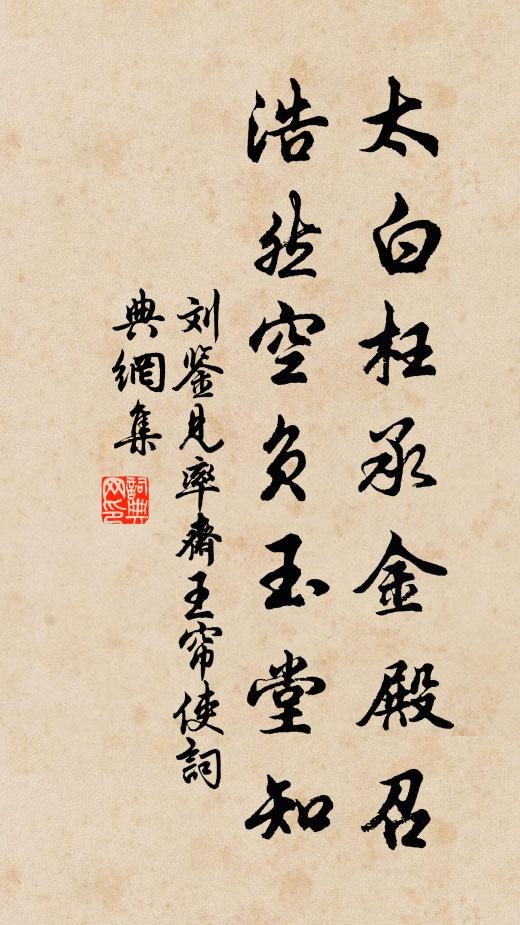 太白枉承金殿召
浩然空负玉堂知
刘鉴见率斋王帘使词
典網集
詞典網印